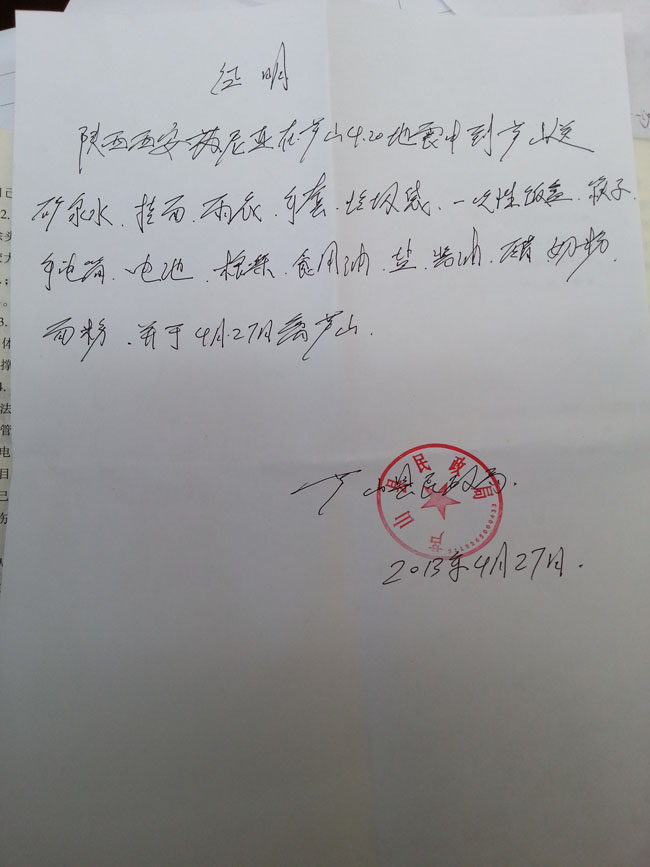 证明
陕西西安 尼亚在芦山4.20地震中到芦山送
矿泉水、挂面、雨衣、手套、垃圾袋、一次性饭盒、筷子
手电筒、电池、粮、食用油、盐、酱油、醋、奶粉、
面粉、并于4月27日离芦山.
芦山县民政局.
芦山县民政局
2013年4月27日.
自己
2.
3.
体
撑
4.
法
管
电
目
己
伤